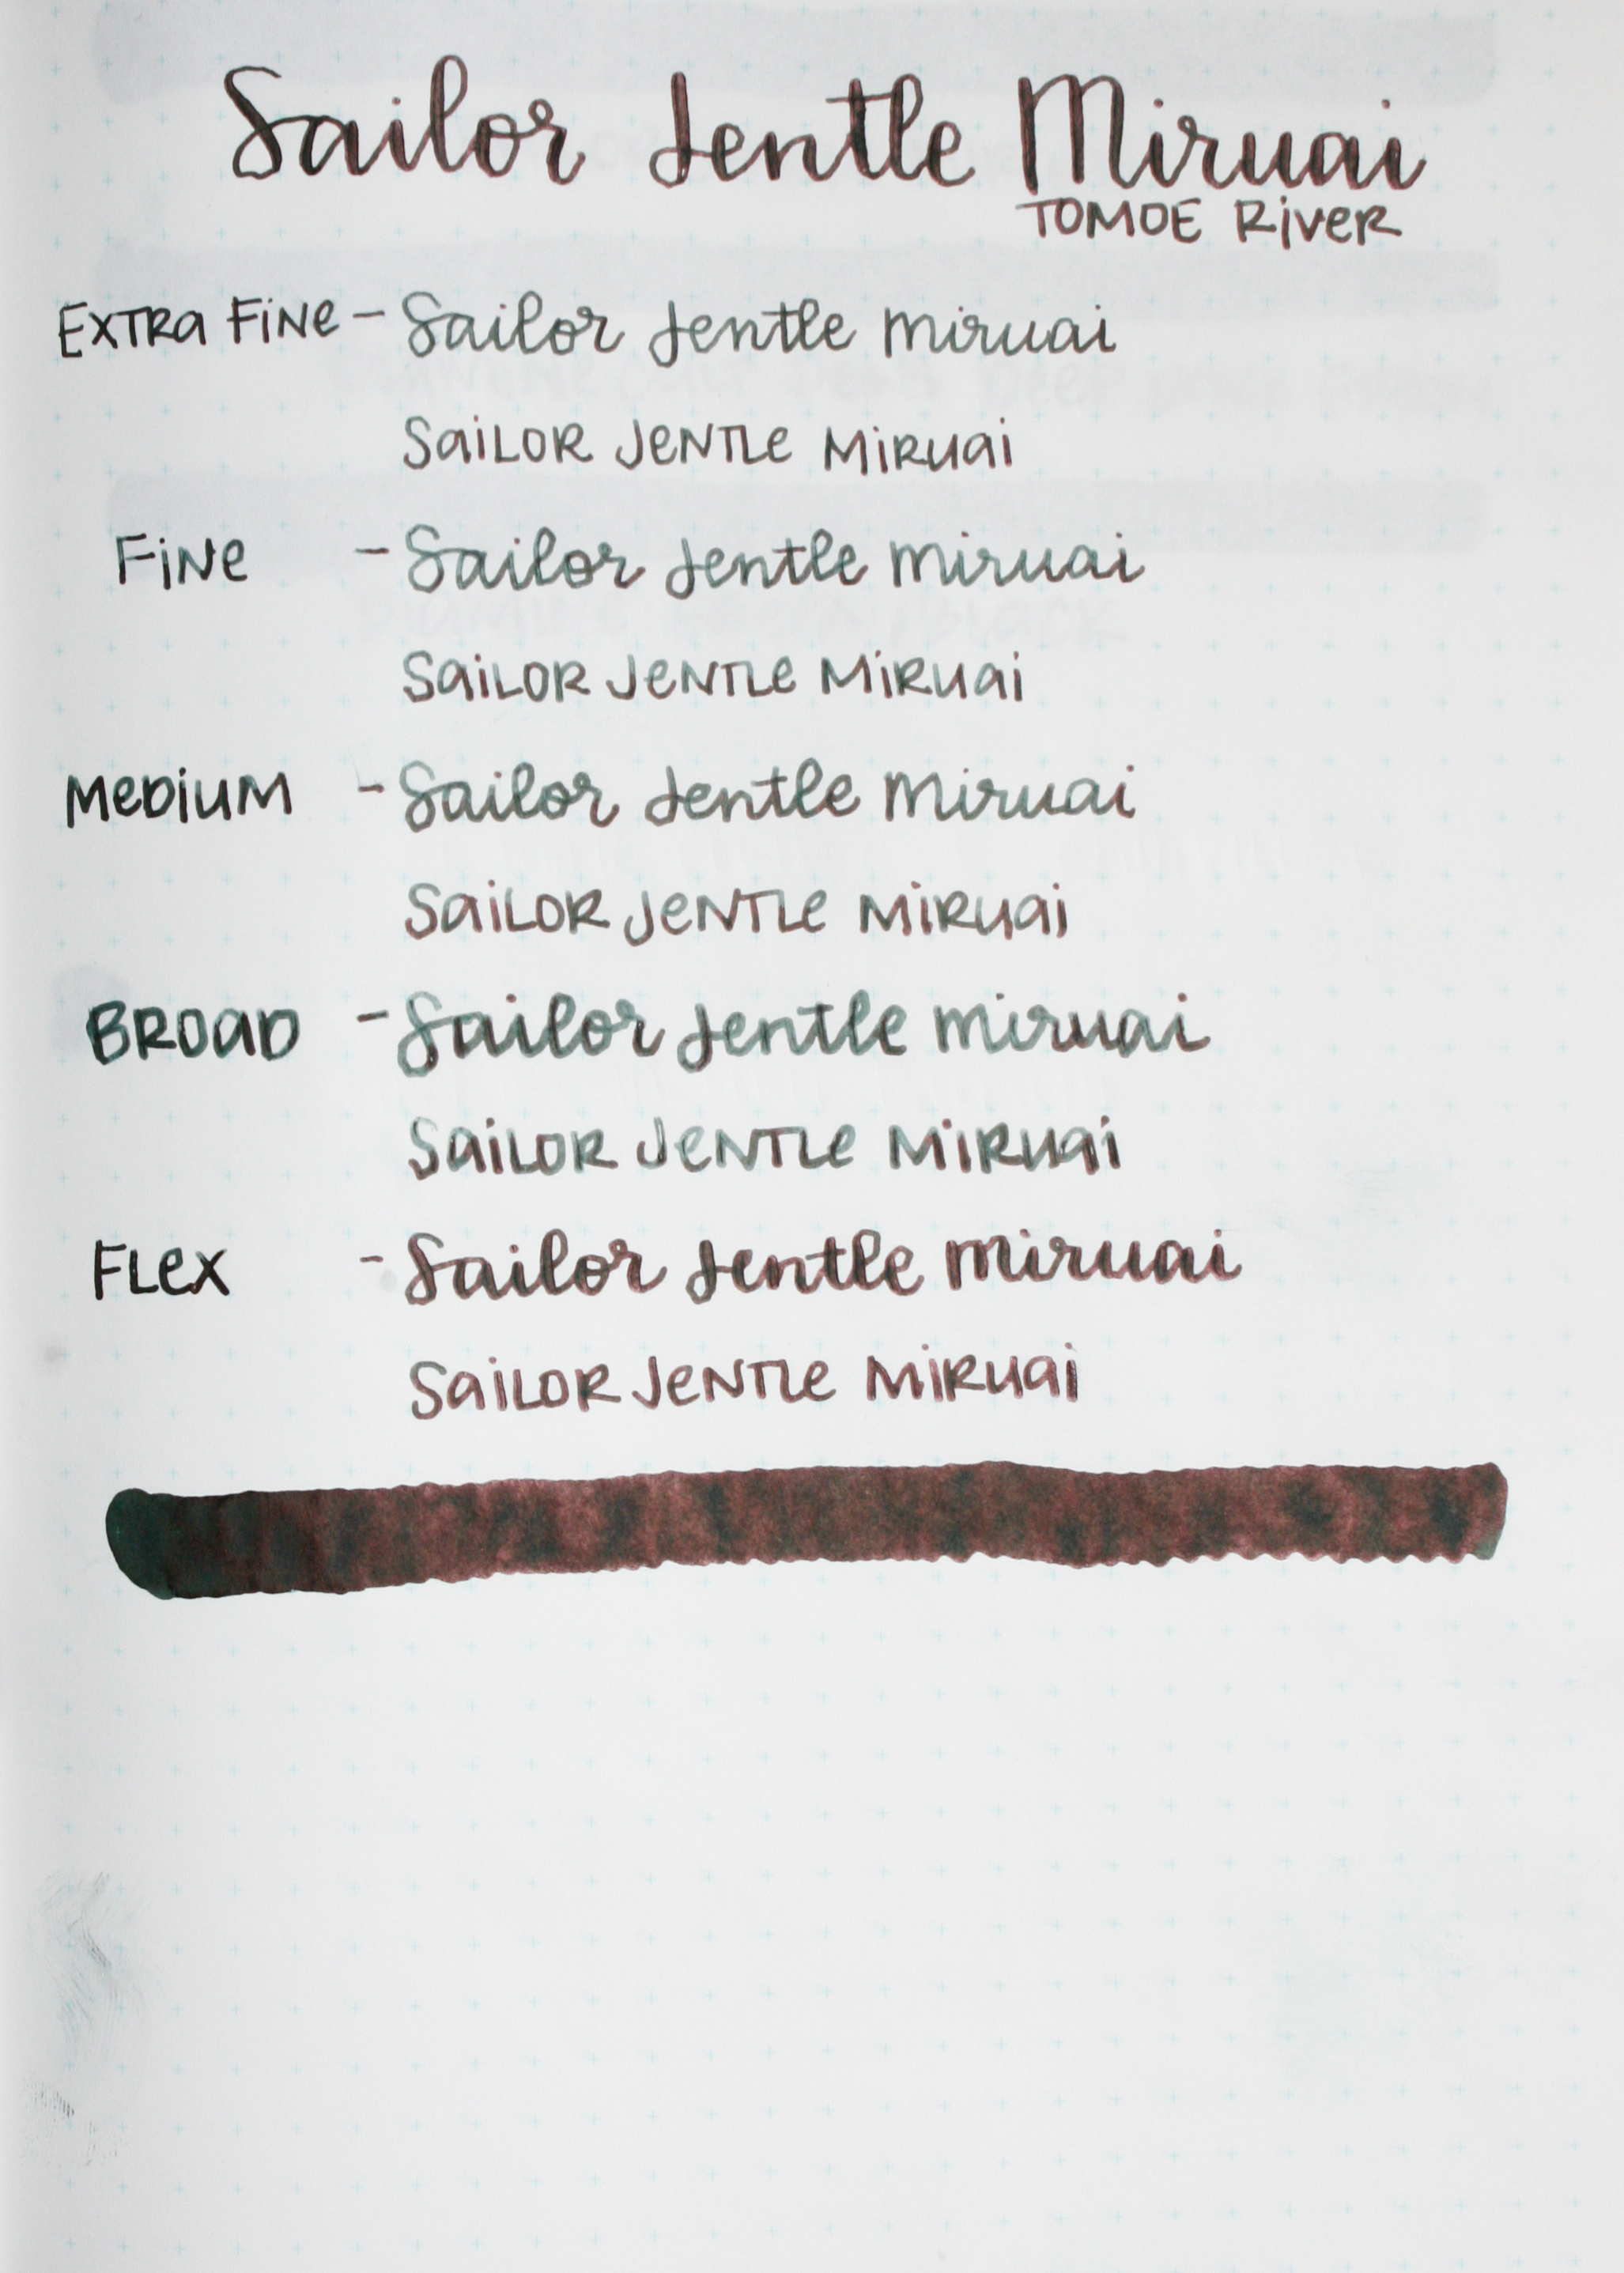 Sailor Jentle Miruai
TOMOE RiveR
EXTRa FiNe - Sailor Jentle Miruai
SaiLOR JeNTLe MiRuai
FiNe - Sailor Jentle Miruai
SaiLOR JeNTLe MiRuai
MeDiuM - Sailor Jentle Miruai
SaiLOR JeNTLe MiRuai
BROaD - Sailor Jentle miruai
SaiLOR JeNTLe MiRuai
FLeX - Sailor Jentle miruai
SaiLOR JeNTLe MiRuai